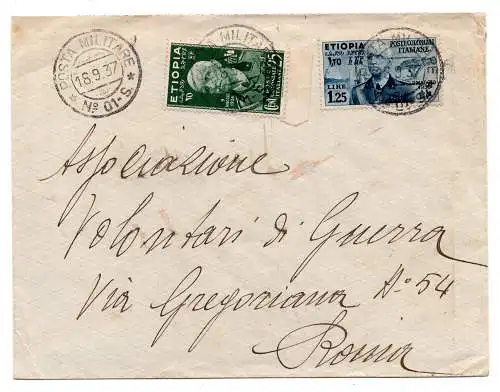 POSTA MILITARE
18.9.37
* No 01-S. *
ETIOPIA
25
ETIOPIA
POSTE COLONIALI
ITALIANE
LIRE
1.25
Associazione
Volontari di Guerra
Via Gregoriana No 54
Roma